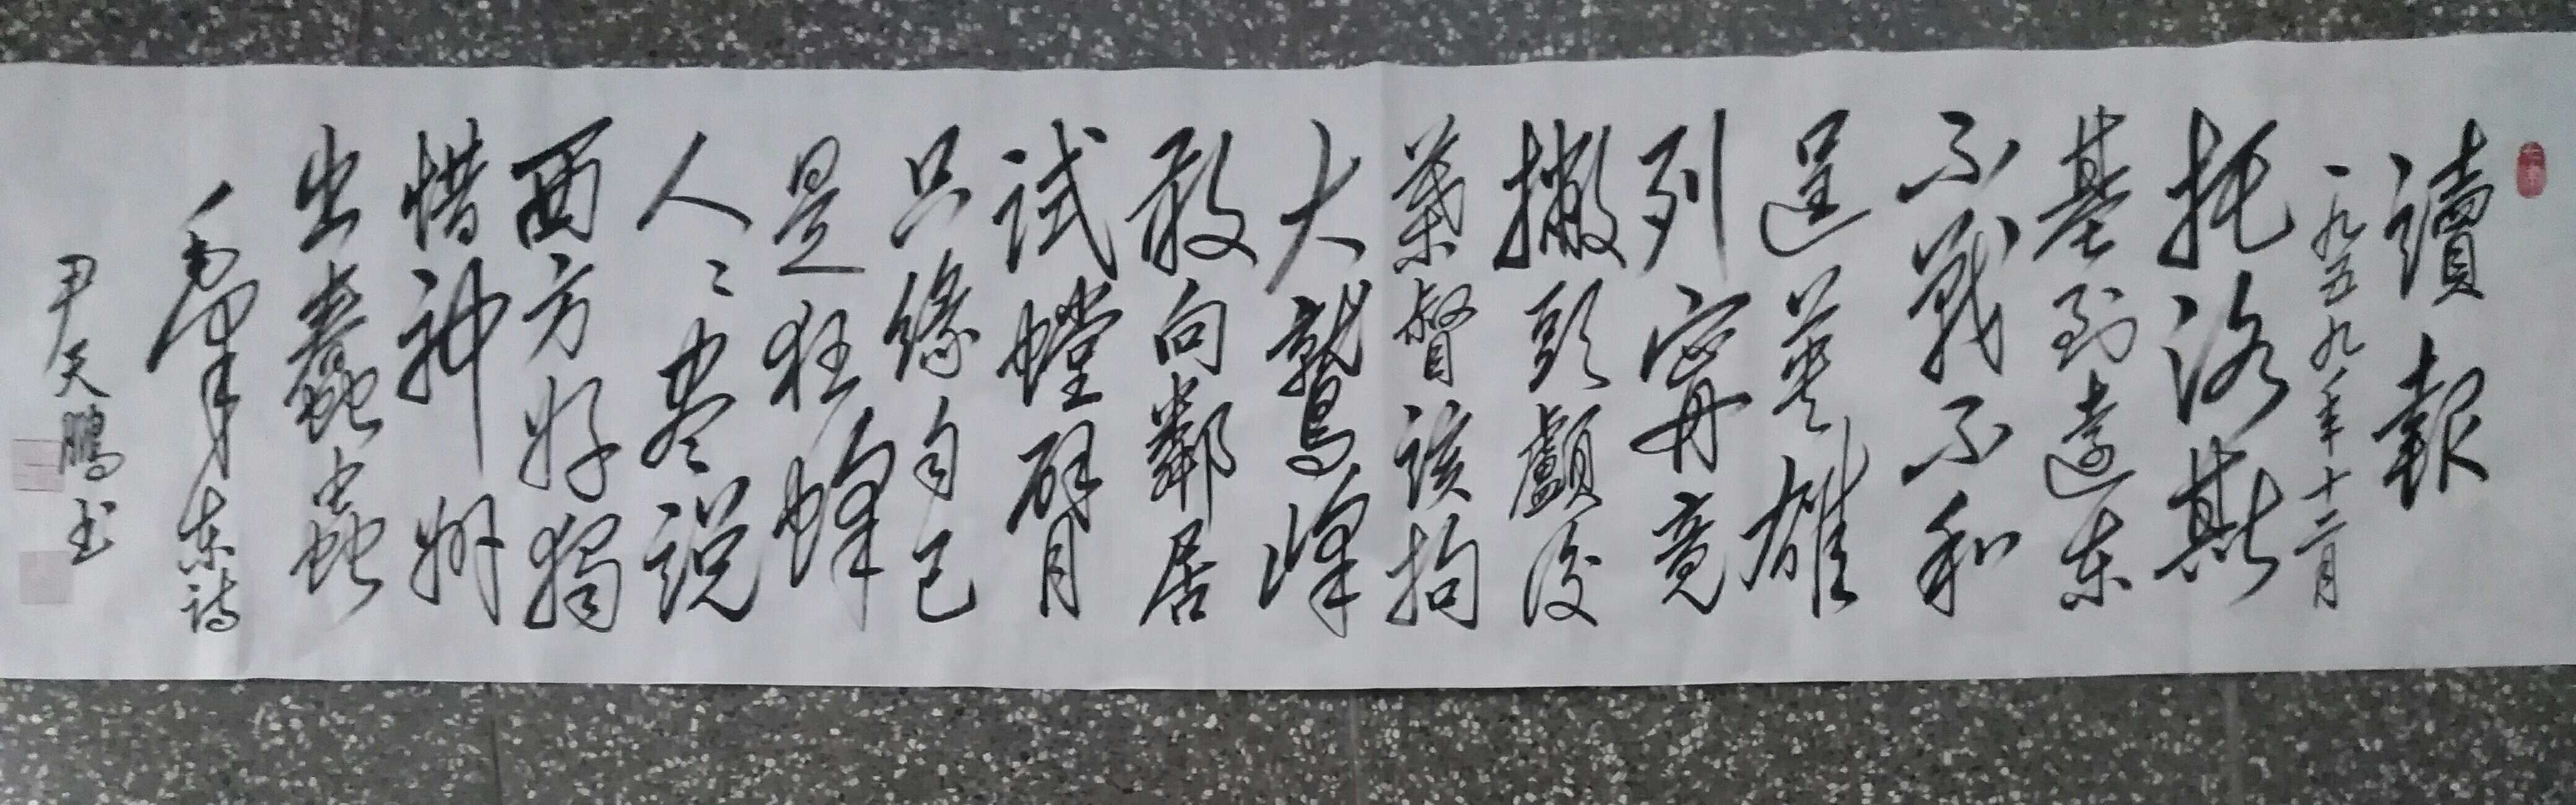 讀報
一九五九年十二月
托洛斯
基到遠东
不戰不和
逞英雄
列寧竟
撇頭顱後
葉督該拘
大鷲峰
敢向鄰居
試螳臂
只緣自己
是狂蜂
人々尽説
西方好獨
惜神州
出蠢蟲
毛澤东詩
尹天鵬书